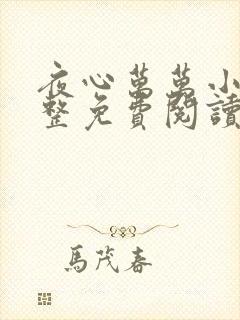 夜心萬萬小
整免費閱讀
馬茂春